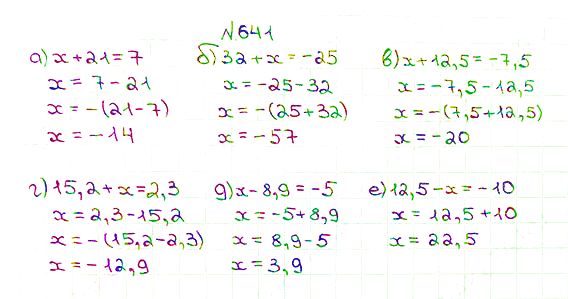 №641
а) x + 21 = 7
x = 7 - 21
x = -(21 - 7)
x = -14
б) 32 + x = -25
x = -25 - 32
x = -(25 + 32)
x = -57
в) x + 12,5 = -7,5
x = -7,5 - 12,5
x = -(7,5 + 12,5)
x = -20
г) 15,2 + x = 2,3
x = 2,3 - 15,2
x = -(15,2 - 2,3)
x = -12,9
д) x - 8,9 = -5
x = -5 + 8,9
x = 8,9 - 5
x = 3,9
е) 12,5 - x = -10
x = 12,5 + 10
x = 22,5